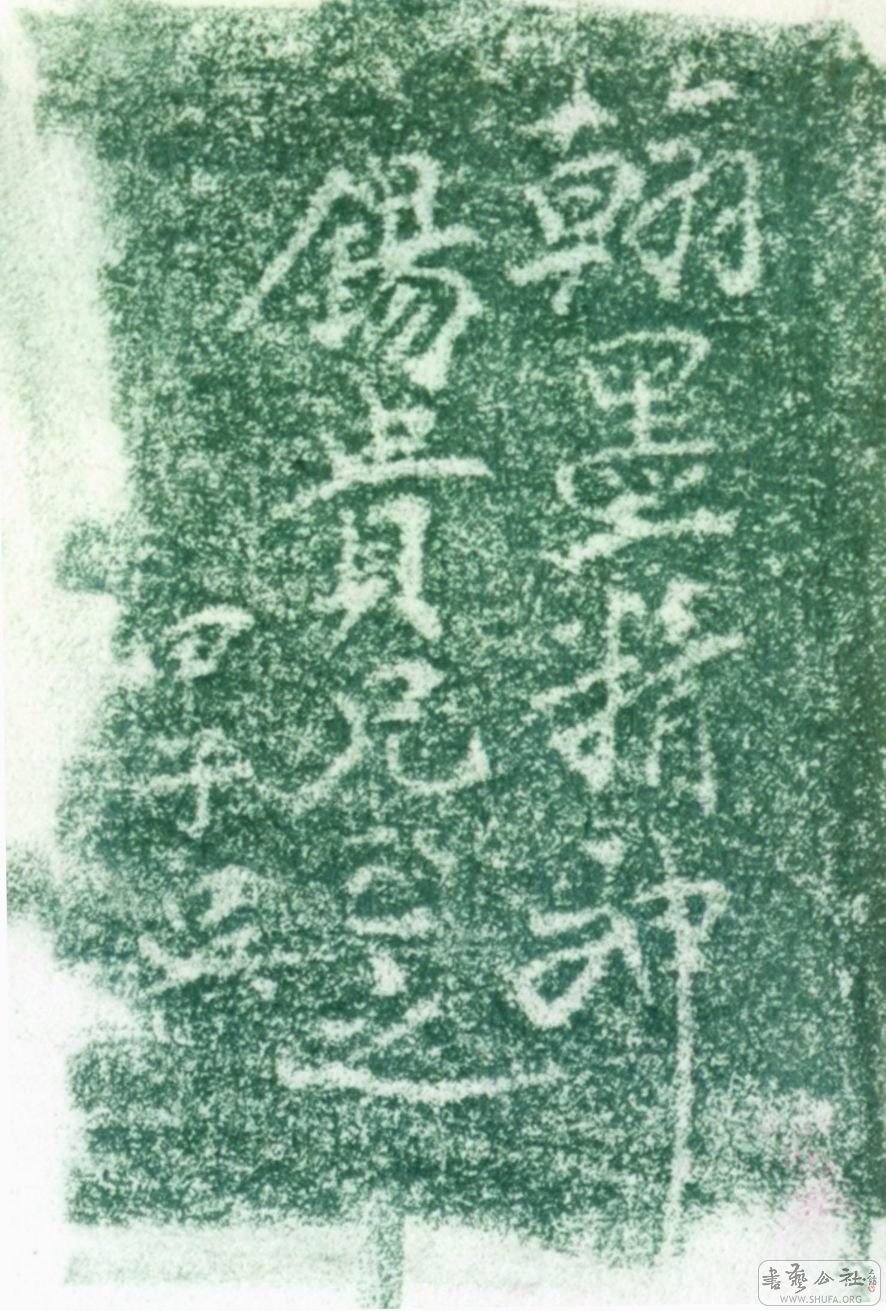 翰墨印
錫貴兄之
甲子
書藝公社
WWW.SHUFA.ORG